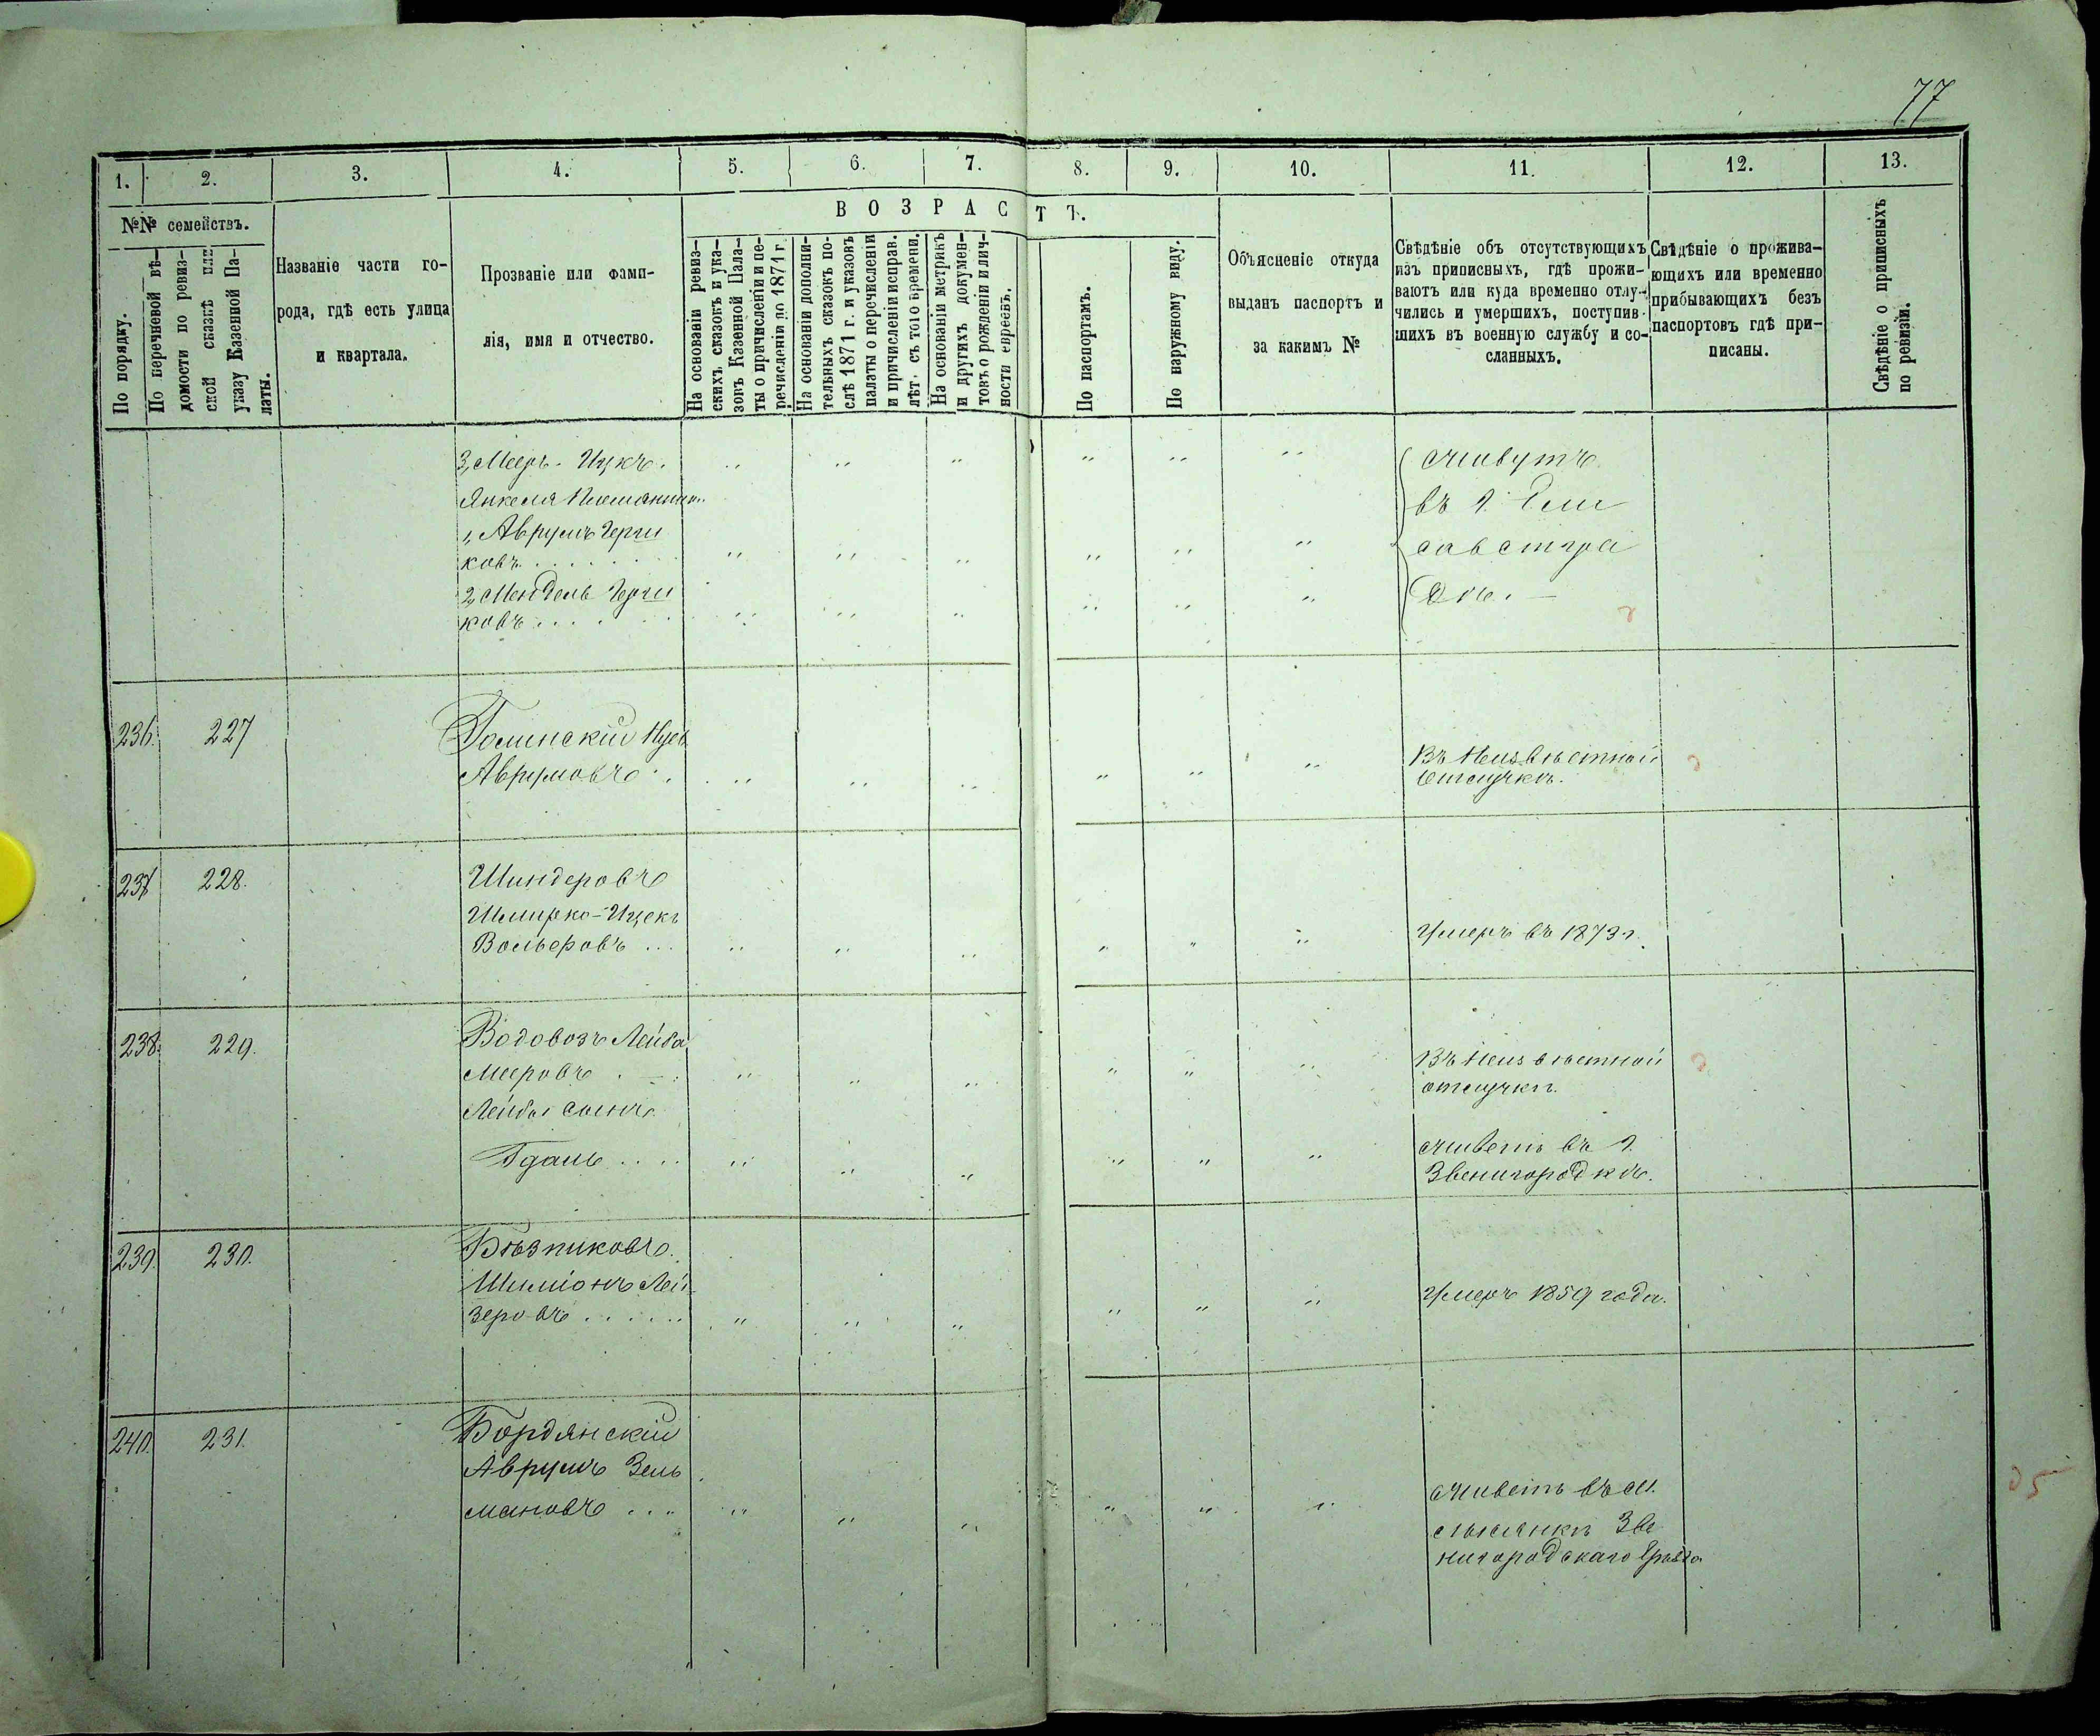 77
1. 2. 3. 4. 5. 6. 7. 8. 9. 10. 11. 12. 13.
№№ семействъ.
По порядку.
По перечневой вѣ-
домости по ревиз-
ской сказкѣ или
указу Казенной Па-
латы.
Названіе части го-
рода, гдѣ есть улица
и квартала.
Прозваніе или фами-
лія, имя и отчество.
ВОЗРАСТЪ.
На основаніи ревиз-
скихъ сказокъ и ука-
зовъ Казенной Пала-
ты о причисленіи и пе-
речисленіи до 1871 г.
На основаніи дополни-
тельныхъ сказокъ по-
слѣ 1871 г. и указовъ
палаты о перечисленіи
и причисленіи исправ.
лѣт. съ того времени.
На основаніи метрикъ
и другихъ докумен-
товъ о рожденіи и лич-
ности евреевъ.
По паспортамъ.
По наружному виду.
Объясненіе откуда
выданъ паспортъ и
за какимъ №
Свѣдѣніе объ отсутствующихъ
изъ приписныхъ, гдѣ прожи-
ваютъ или куда временно отлу-
чились и умершихъ, поступив-
шихъ въ военную службу и со-
сланныхъ.
Свѣдѣніе о прожива-
ющихъ или временно
прибывающихъ безъ
паспортовъ гдѣ при-
писаны.
Свѣдѣніе о приписныхъ
по ревизіи.
3, Мееръ-Ицкъ.
Янкеля Племянники
1, Аврумъ Герш
ковъ
2, Мендель Герш
ковъ
Живутъ
въ г. Ели
саветгра
дѣ.
236. 227
Голинскій Нусь
Аврумовъ
Въ Неизвѣстной
Отлучкѣ.
237 228.
Шиндеровъ
Шмирко-Ицекъ
Вольеровъ
Умеръ въ 1873 г.
238. 229.
Водовозъ Лейба
Мееровъ
Въ Неизвѣстной
отлучкѣ.
Лейбы сынъ
Гдаль
Живетъ въ г.
Звенигородкѣ.
239. 230.
Бѣзпиковъ
Шиміонъ Лей
зеровъ
Умеръ 1859 года.
240. 231.
Бордянскій
Аврумъ Зель
мановъ
Живетъ въ м.
Лысянкѣ Зве
нигородскаго Уѣзда